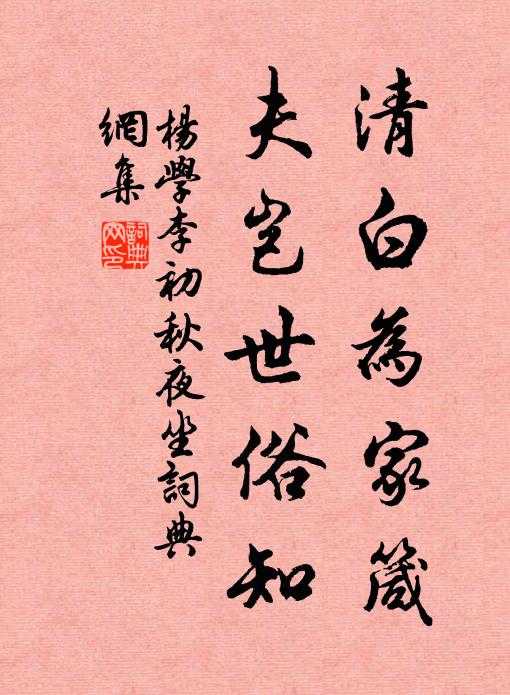 清白為家箴
夫豈世俗知
楊學李初秋夜坐詞典
網集
詞典
网印